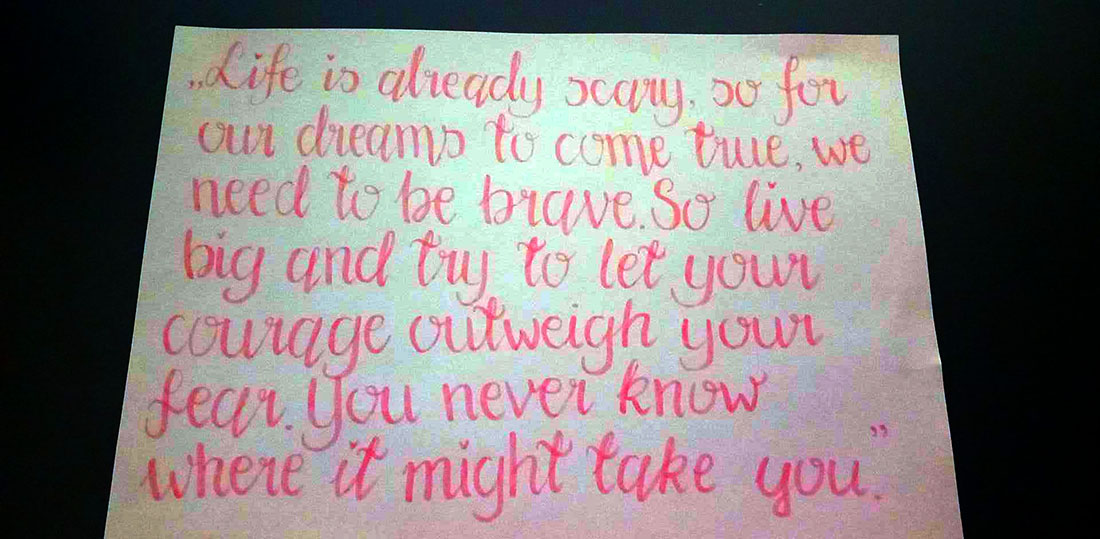 „Life is already scary, so for
our dreams to come true, we
need to be brave. So live
big and try to let your
courage outweigh your
fear. You never know
where it might take you.”